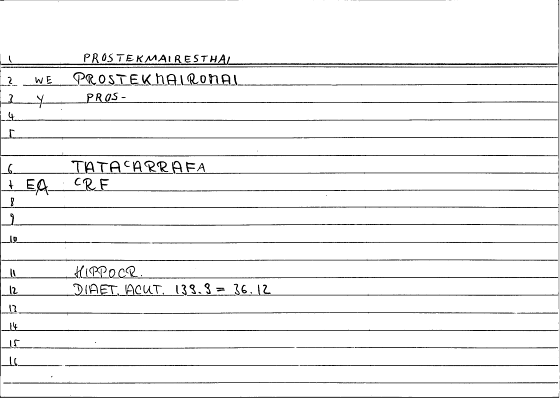 1 PROSTEKMAIRESTHAI
2 WE PROSTEKMAIROMAI
3 Y PROS-
4
5
6 TATACARRAFA
7 EA CRF
8
9
10
11 HIPPOCR.
12 DIAET. ACUT. 139.9 = 36.12
13
14
15
16